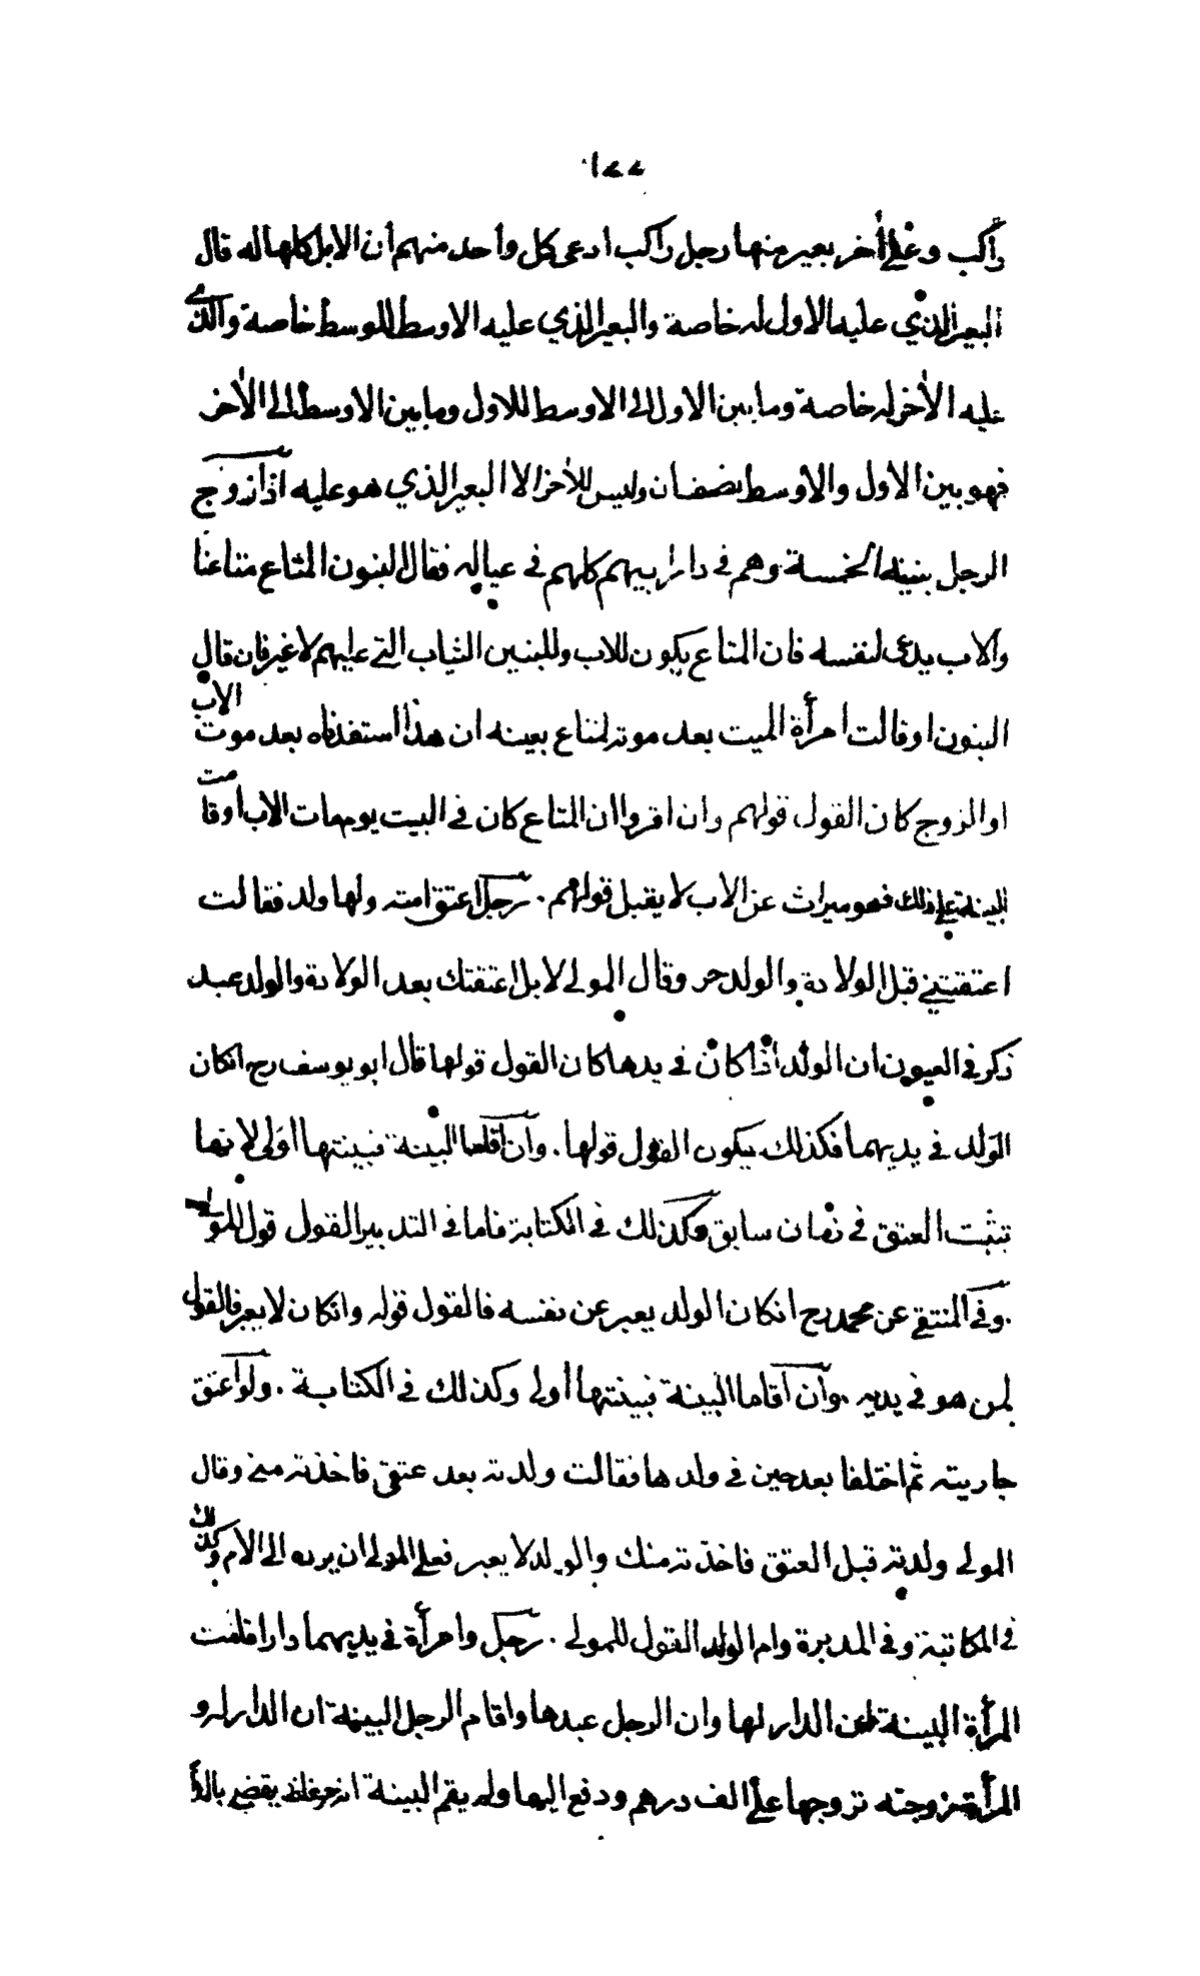 ١٢٢
راكب وعلى أخر بعير منها رجل راكب ادعى كل واحد منهم أن الابل كلها له قال
البعير الذي عليه الاول له خاصة والبعير الذي عليه الاوسط للوسط خاصة والذي
عليه الأخر له خاصة وما بين الاول الى الاوسط للاول وما بين الاوسط الى الأخر
فهو بين الاول والاوسط نصفان وليس للأخر الا البعير الذي هو عليه اذا زوج
الرجل بنيه الخمسة وهم في دار ابيهم كلهم في عياله فقال البنون المتاع متاعنا
والاب يدعى لنفسه فان المتاع يكون للاب وللبنين الثياب التي عليهم لا غير فان قال
البنون او قالت امرأة الميت بعد موته لمتاع بعينه ان هذا استفدناه بعد موت الاب
او الزوج كان القول قولهم وان اقروا ان المتاع كان في البيت يوم مات الاب أو قامت
البينة على ذلك فهو ميراث عن الاب لا يقبل قولهم . رجل اعتق امته ولها ولد فقالت
اعتقتني قبل الولادة والولد حر وقال المولى لا بل اعتقتك بعد الولادة والولد عبد
ذكر في العيون ان الولد اذا كان في يدها كان القول قولها قال ابو يوسف رح انكان
الولد في يديهما فكذلك يكون القول قولها . وان اقاما البينة فبينتها اولى لانها
تثبت العتق في زمان سابق وكذلك في الكتابة فاما في التدبير القول قول المولى
. وفي المنتقى عن محمد رح انكان الولد يعبر عن نفسه فالقول قوله وانكان لا يعبر فالقول
لمن هو في يديه . وان أقاما البينة فبينتها أولى وكذلك في الكتابة . ولو أعتق
جاريته ثم اختلفا بعد حين في ولدها فقالت ولدته بعد عتقى فاخذته مني وقال
المولى ولدته قبل العتق فاخذته منك والولد لا يعبر فعلى المولى ان يرده الى الأم وكذلك
في المكاتبة وفي المدبرة وام الولد القول للمولى . رجل وامرأة في يديهما دار اقامت
المرأة البينة ان الدار لها وان الرجل عبدها واقام الرجل البينة ان الدار له و
المرأة زوجته تزوجها على الف درهم ودفع اليها ولم يقم البينة انه حر يقضى